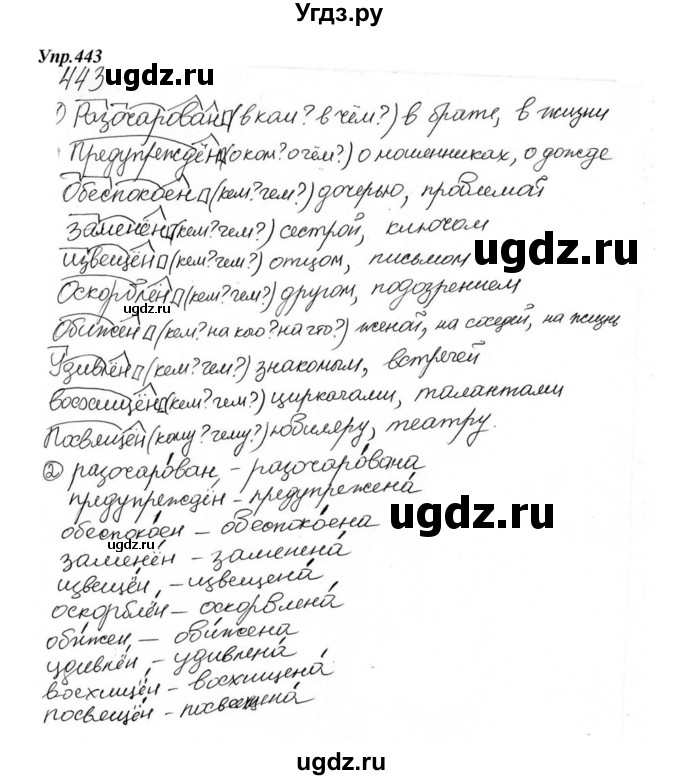 Угдз.ру
Упр.443
443
ugdz.ru
1) Разочарован (в ком? в чём?) в брате, в жизни
Предупреждён (о ком? о чём?) о мошенниках, о дожде
ugdz.ru
Обеспокоен (кем? чем?) дочерью, проблемой
Заменён (кем? чем?) сестрой, ключом
ugdz.ru
Извещён (кем? чем?) отцом, письмом
Оскорблён (кем? чем?) другом, подозрением
ugdz.ru
Обижен (кем? на кого? на что?) женой, на соседей, на жизнь
Удивлён (кем? чем?) знакомым, встречей
(кем? чем?) циркачами, талантами
Посвящен (кому? чему?) юбиляру, театру.
2 разочарован, – разочарована
предупреждён – предупрежена
обеспокоен – обеспокоена
ugdz.ru
ugdz.ru
заменён – заменена
извещён, – извещена
оскорблён – оскорблена
обижен – обижена
удивлён, – удивлена
восхищён – восхищена
посвящён –
ugdz.ru